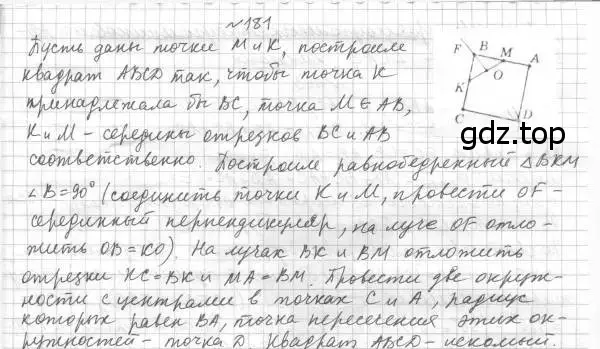 №181
Пусть даны точки М и К, построим
квадрат ABCD так, чтобы точка К
принадлежала бы BC, точка M∈AB,
К и М - середины отрезков BC и AB
соответственно. Построим равнобедренный △BKM
∠B=90° (соединить точки К и М, провести OF -
серединный перпендикуляр, на луче OF отло-
жить OB=KO). На лучах BK и BM отложить
отрезки KC=BK и MA=BM. Провести две окруж-
ности с центрами в точках С и А, радиус
которых равен BA, точка пересечения этих ок-
ружностей - точка D. Квадрат ABCD - искомый.
F B M A
O
K
C D
gdz.top